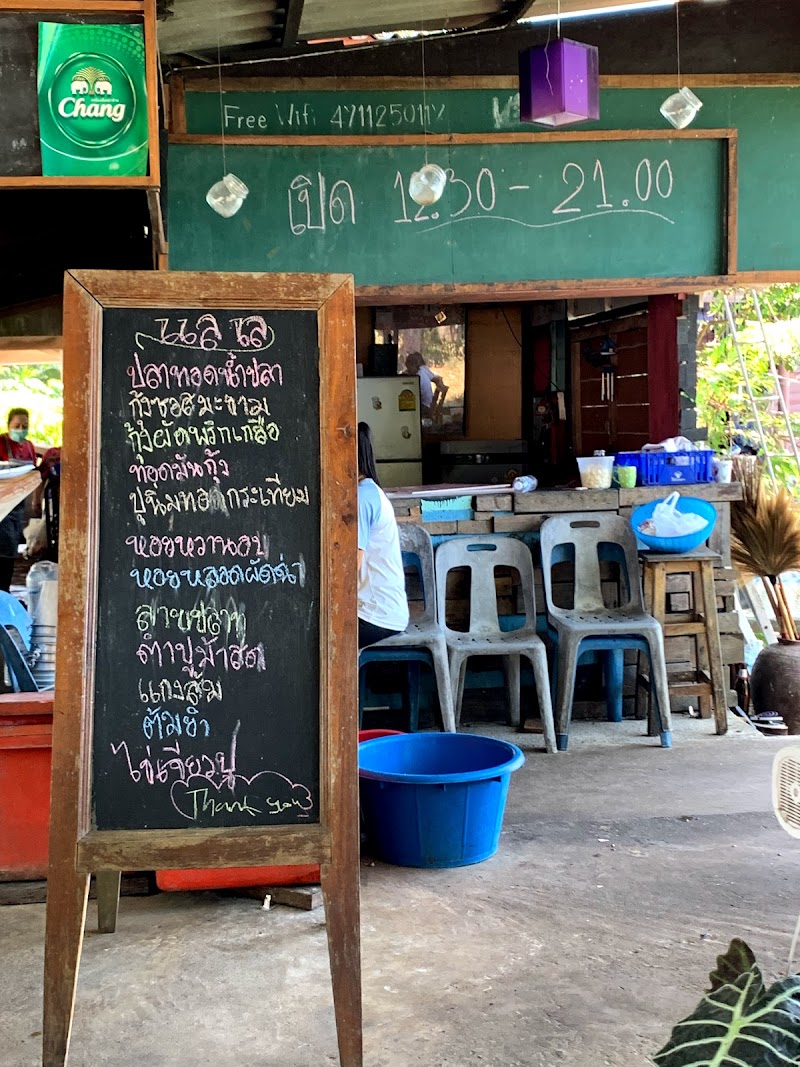 Chang
Free Wifi 4711250112
เปิด 12.30 - 21.00
แลเล
ปลาทอดน้ำปลา
กุ้งซอสมะขาม
กุ้งผัดพริกเกลือ
ทอดมันกุ้ง
ปูนิ่มทอดกระเทียม
หอยหวานอบ
หอยหลอดผัดฉ่า
ตำปูม้าสด
แกงส้ม
ต้มยำ
ไข่เจียวปู
Thank you